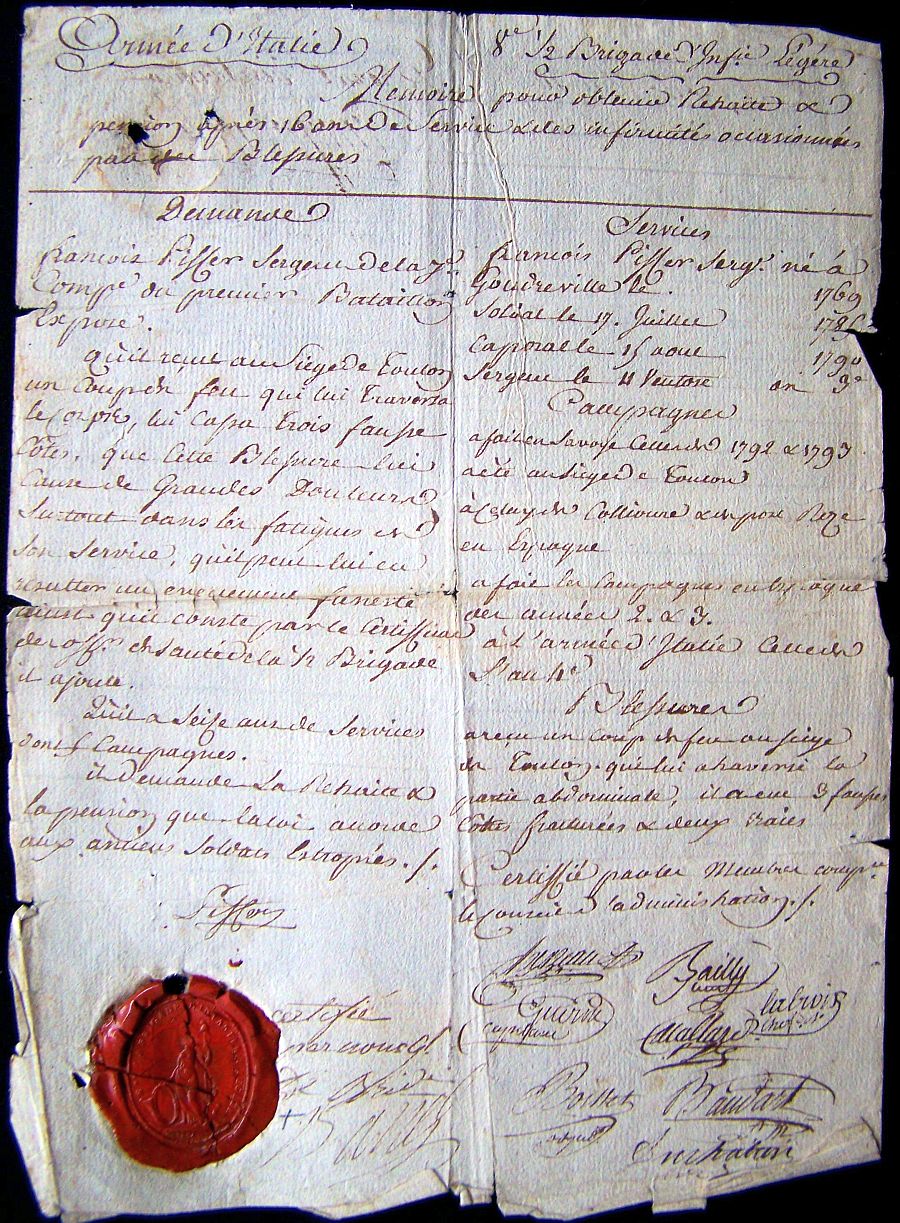 Armée d'Italie
8e 1/2 Brigade d'Infie Légére
Memoire pour obtenir Retraite &
pension après 16 ans de Service & des infirmités occasionnées
par des Blessures
Demande
francois Fisser Sergent de la 7e
Compie du premier Bataillon
Expose.
qu'il reçut au Siege de Toulon
un Coup de feu qui lui Traversa
le Corps, lui Cassa Trois fausse
Côtes, que Cette Blessure lui
Cause de Grandes Douleurs
Surtout dans les fatigues de
Son Service, qu'il peut lui en
resulter un evenement funeste
ainsi qu'il conste par le Certifficat
des offrs de Santé de la 1/2 Brigade
il ajoute.
Qu'il a Seize ans de Services
dont 5 Campagnes.
il Demande La Retraite &
la pension que la loi accorde
aux anciens Soldats Estropiés ./.
Fisser
certifié
par nous
Services
francois Fisser Sergt. né à
Goudreville le. 1769
Soldat le 17. Juillet
Capporal le 15 aout 1790
Sergent le 11 Ventose an 3e
Campagnes
a fait en Savoye Celles de 1792 & 1793
a été au Siege de Toulon
à Celuy de Collioure & de
en Espagne
a fait les Campagnes en Espagne
des années 2. & 3.
à L'armée d'Italie Celle de
L'an 4e
Blessures
a reçu un Coup de feu au siege
de Toulon. qui lui a traversé la
partie abdominale, il a eue 3 fausses
Côttes fracturées & deux vraies
Certiffié par les Membres compt
le Conseil d'administration ./.
Bailly
Guerin
capitaine
Boillot
Baudart